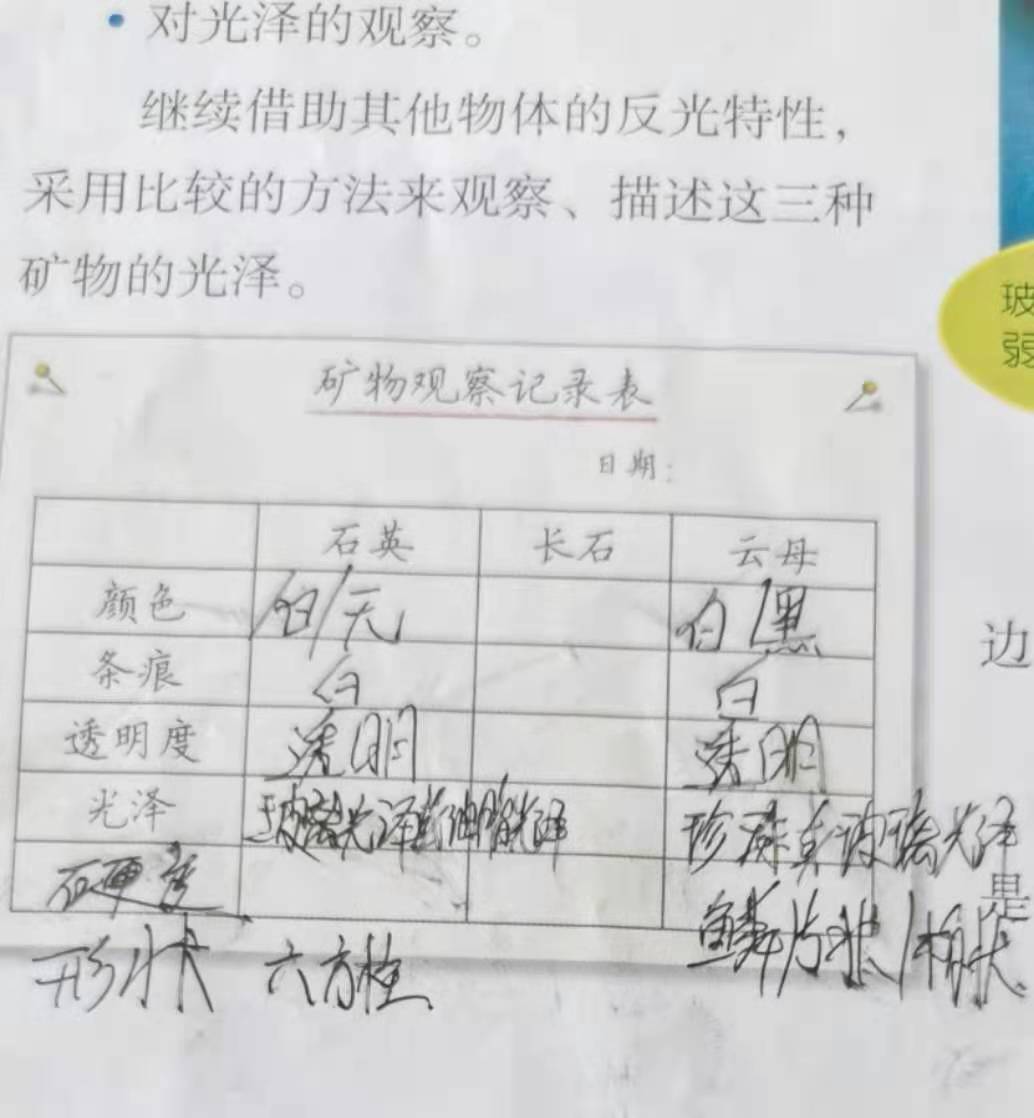 • 对光泽的观察。
继续借助其他物体的反光特性，
采用比较的方法来观察、描述这三种
矿物的光泽。
玻
弱
矿物观察记录表
日期：
石英 长石 云母
颜色 白/天 白/黑
边
条痕 白 白
透明度 透明 透明
光泽 玻璃光泽或油脂光泽 珍珠或玻璃光泽
硬度
是
形状 六方柱 鳞片状/板状